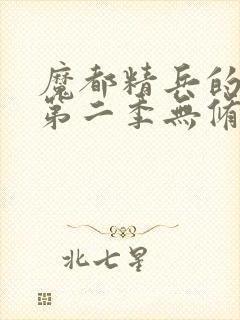 魔都精兵的
第二季無脩
北七星